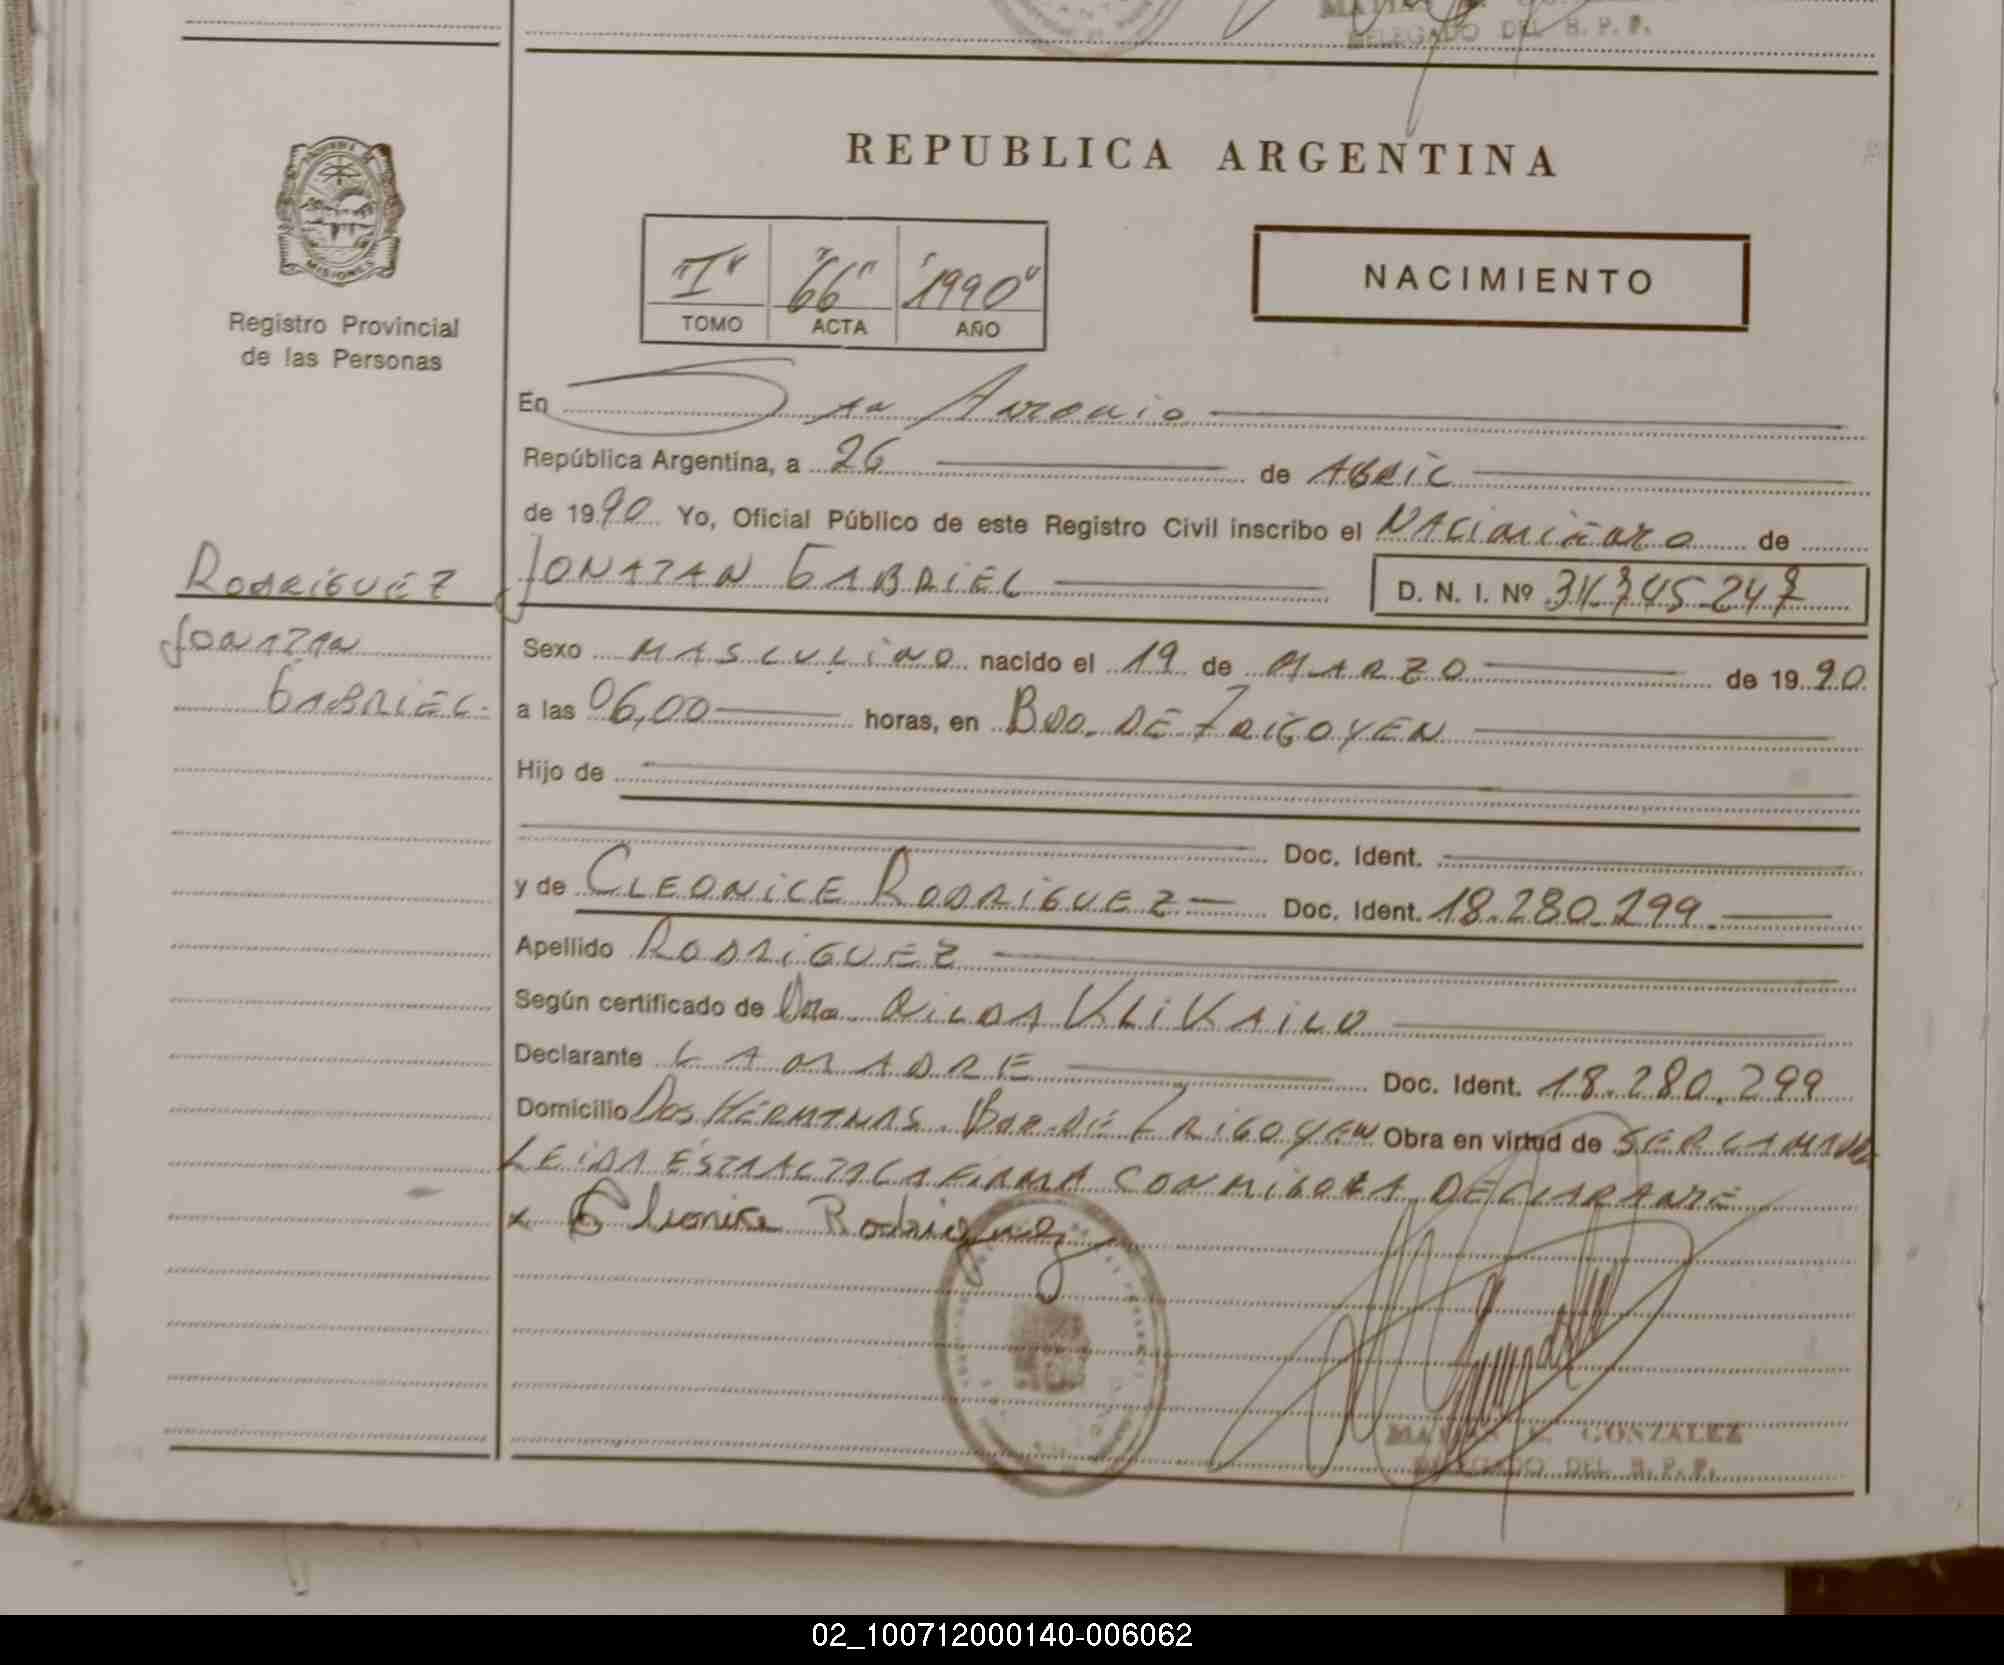 DELEGADO DEL R. P. P.
REPUBLICA ARGENTINA
PROVINCIA DE
MISIONES
Registro Provincial
de las Personas
"I" "66" "1990"
TOMO ACTA AÑO
NACIMIENTO
En San Antonio
República Argentina, a 26 de ABRIL
de 1990 Yo, Oficial Público de este Registro Civil inscribo el NACIMIENTO de
RODRIGUEZ
JONATAN
GABRIEL.
JONATAN GABRIEL D. N. I. Nº 34.745.247
Sexo MASCULINO nacido el 19 de MARZO de 1990
a las 06,00 horas, en BDO. DE IRIGOYEN
Hijo de
Doc. Ident.
y de CLEONICE RODRIGUEZ Doc. Ident. 18.280.299
Apellido RODRIGUEZ
Según certificado de Dra. NILDA
Declarante LA MADRE Doc. Ident. 18.280.299
Domicilio DOS HERMANAS. BDO. DE IRIGOYEN Obra en virtud de SER LA MADRE
LEIDA ESTA ACTA LA FIRMA CONMIGO LA DECLARANTE
x Cleonice Rodriguez
MATIAS GONZALEZ
DELEGADO DEL R. P. P.
02_100712000140-006062